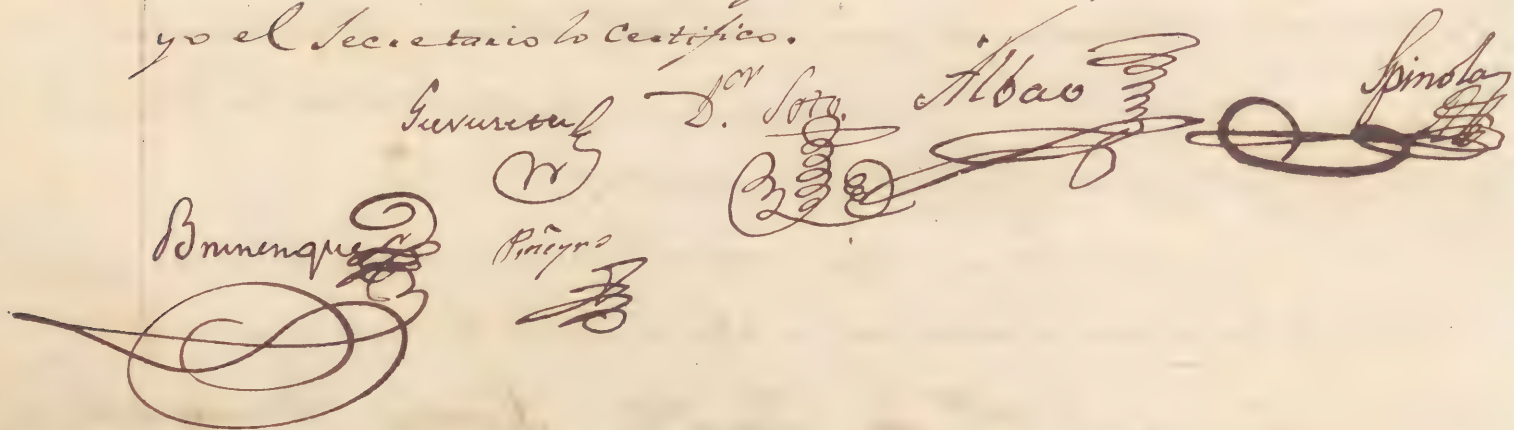 yo el Secretario lo Certifico.
D.or Soto. Albao Spinola
Brunenque Piñeyro